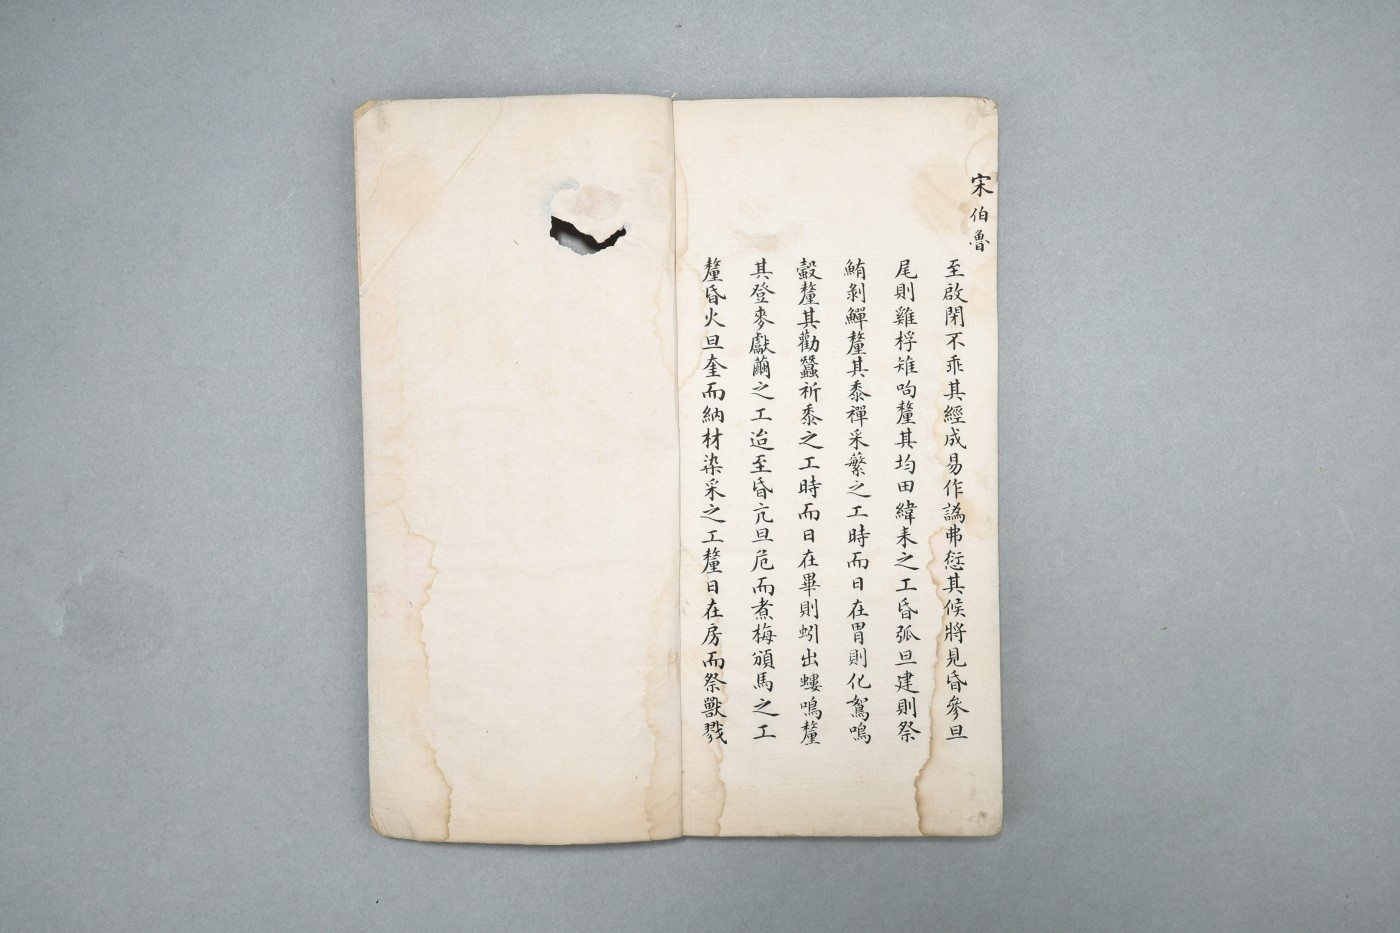 宋伯魯
至啟閉不乖其經成易作譌弗愆其候將見昏參旦
尾則雞桴雉呴釐其均田緯耒之工昏弧旦建則祭
鮪剝鱓釐其黍禪采蘩之工時而日在胃則化鴽鳴
鷇釐其勸蠶祈黍之工時而日在畢則蚓出螻鳴釐
其登麥獻繭之工迨至昏亢旦危而煮梅頒馬之工
釐昏火旦奎而納材染采之工釐日在房而祭獸戮